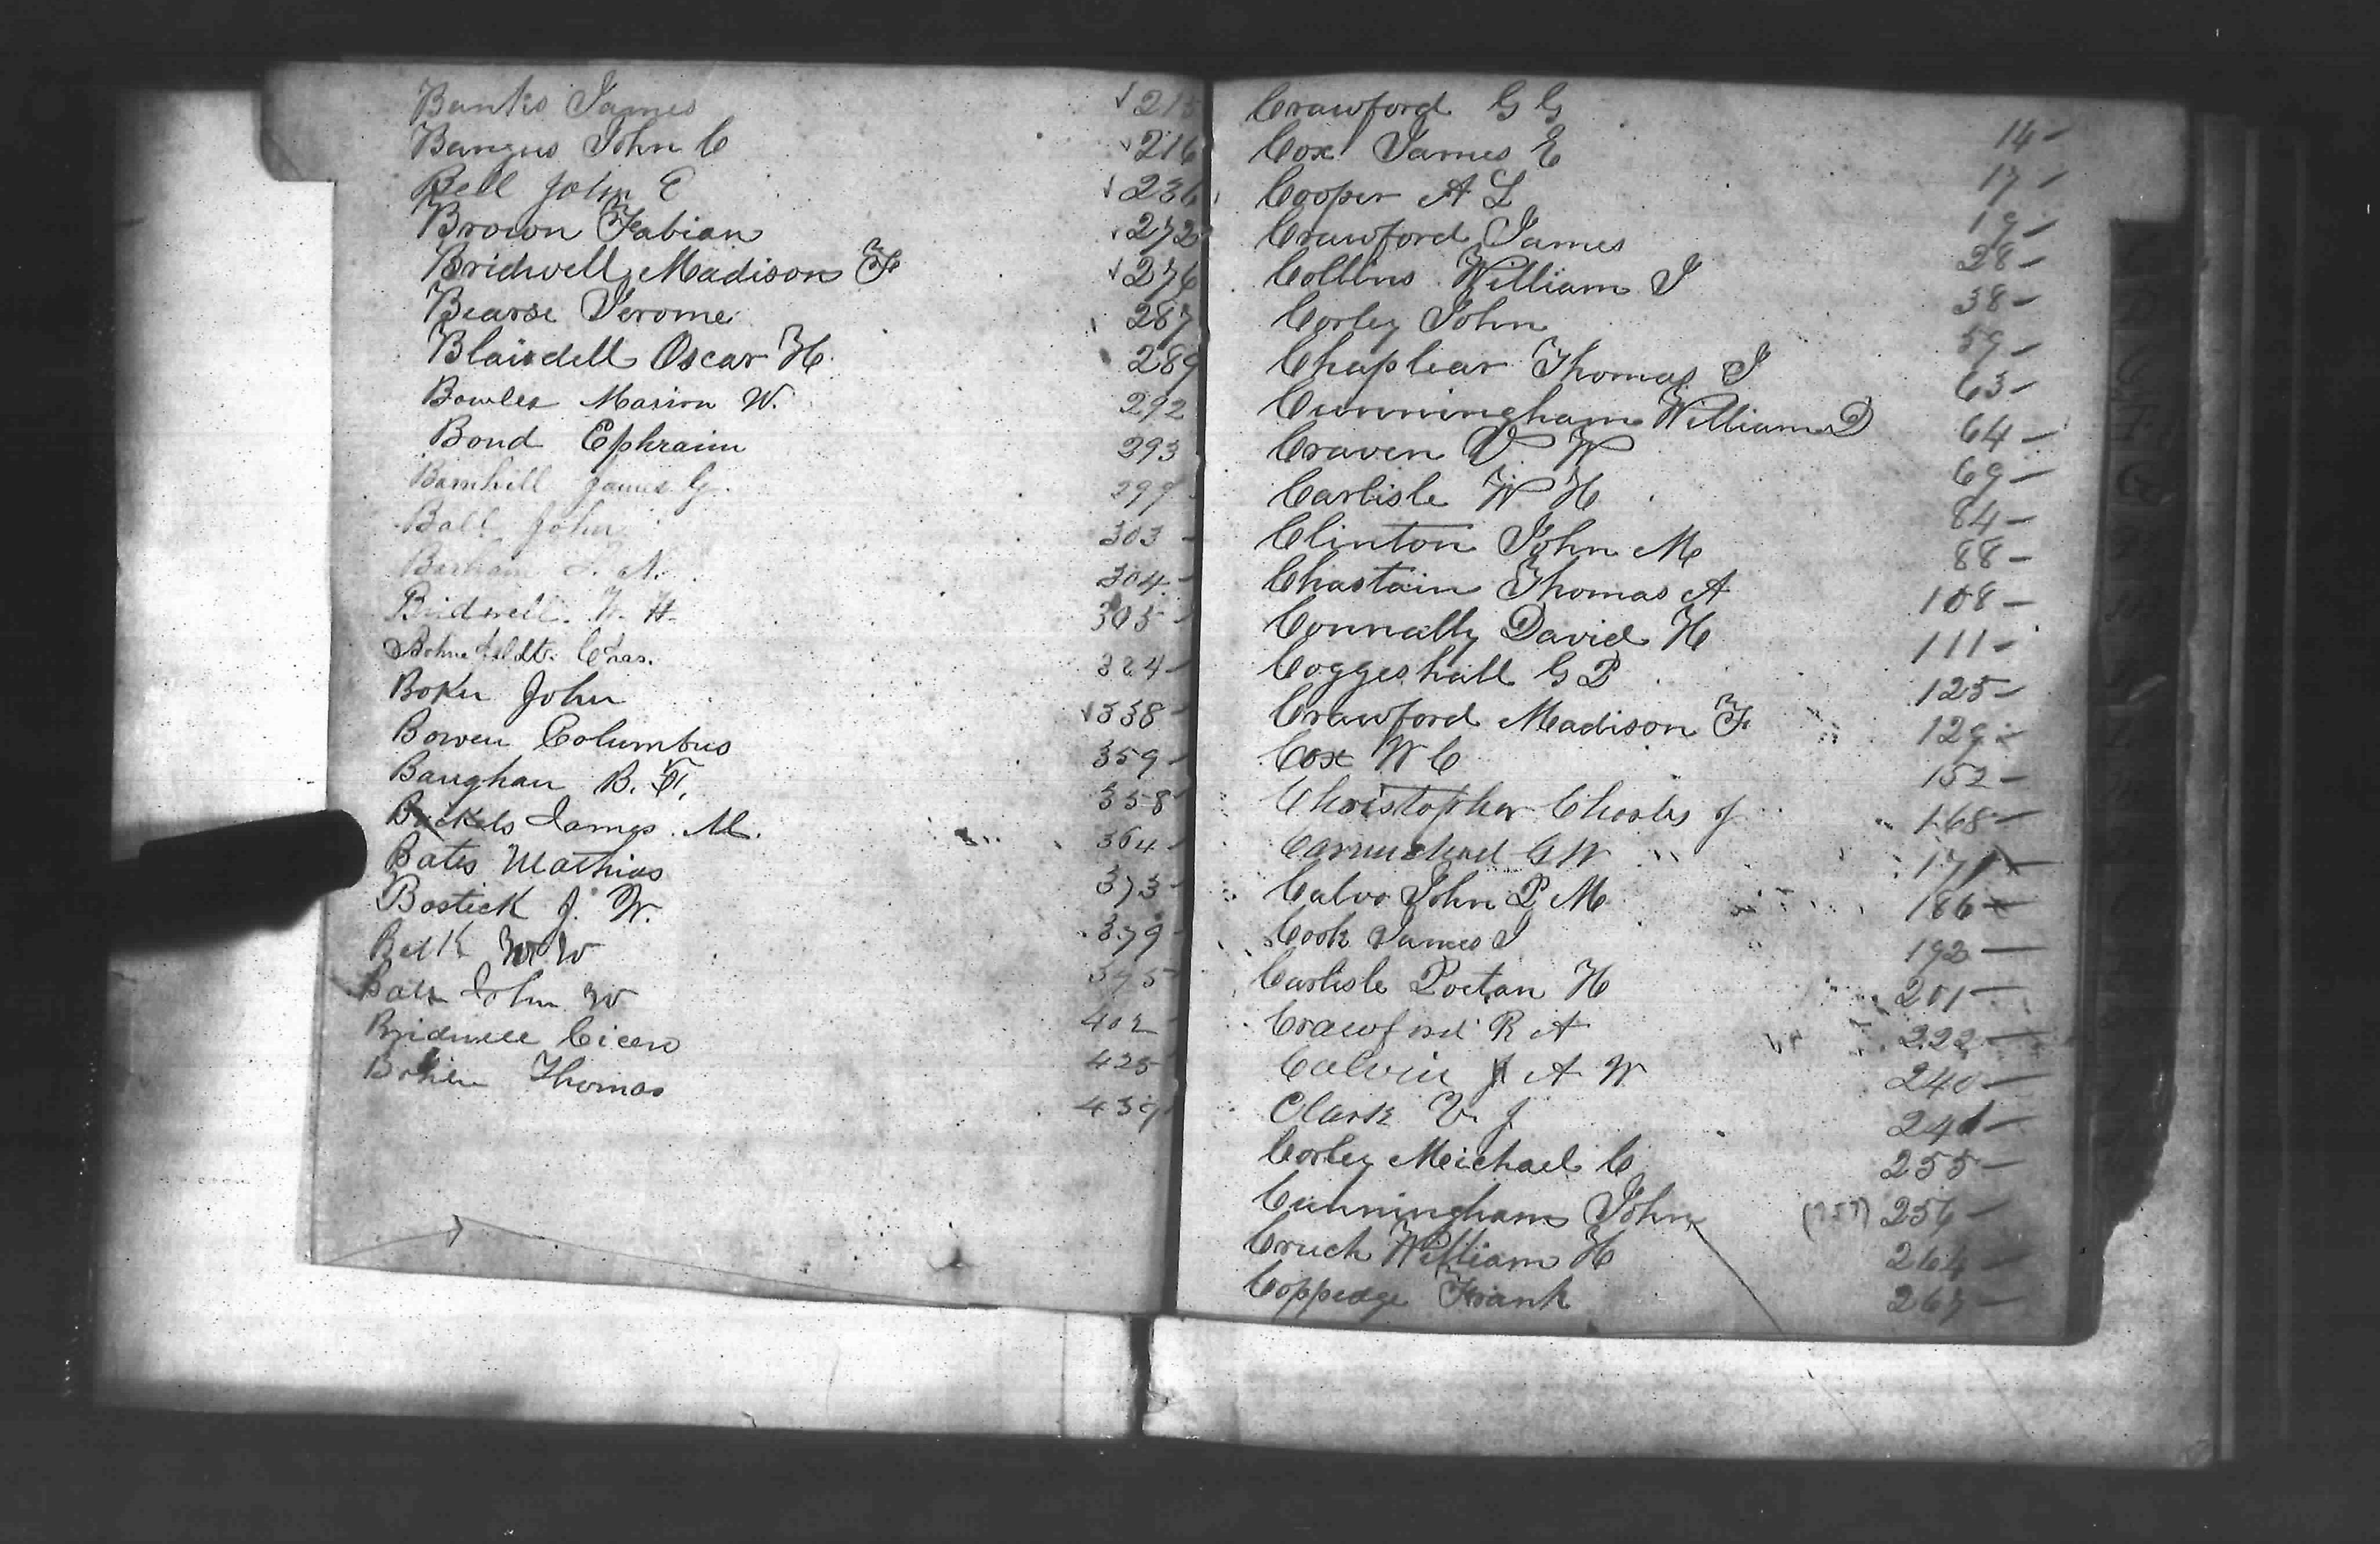 Banks James ✓ 215
Bangus John C ✓ 216
Bell John E ✓ 236
Brown Fabian ✓ 272
Bridwell Madison F ✓ 276
Bearse Jerome 287
Blaisdell Oscar H. 289
Bowles Marion W. 292
Bond Ephraim 293
Barnhill James G. 299
Ball John 303 -
304 -
Bridwell. W. H. 305 -
Bohnefeldt. Chas. 324 -
Boker John ✓ 338 -
Bowen Columbus 359 -
Baughan B. F. 358
Bickels James. M. 364 -
Bates Mathias 373 -
Bostick J. W. 379 -
Belk W W 375 -
Bate John W 402 -
Bridwell Cicero 425
Thomas 439
Crawford G G 14 -
Cox James E 17 -
Cooper A L 19 -
Crawford James 28 -
Collins William J 38 -
Corley John 59 -
Chaplear Thomas J 63 -
Cunningham William D 64 -
Craven V W 69 -
Carlisle W H 84 -
Clinton John M 88 -
Chastain Thomas A 108 -
Connally David H 111 -
Coggeshall G P 125 -
Crawford Madison F 129 -
Cox W C 152 -
Christopher Charles J 168 -
G W 171 -
Calvo John P M 186 -
Cook James J 192 -
Carlisle Poetan H 201 -
Crawford R A 222 -
Calvin J A W 240 -
Clark V. J 241 -
Corley Michael C 255 -
Cunningham John (257) 256 -
Cruch William H 264 -
Coppedge Frank 267 -